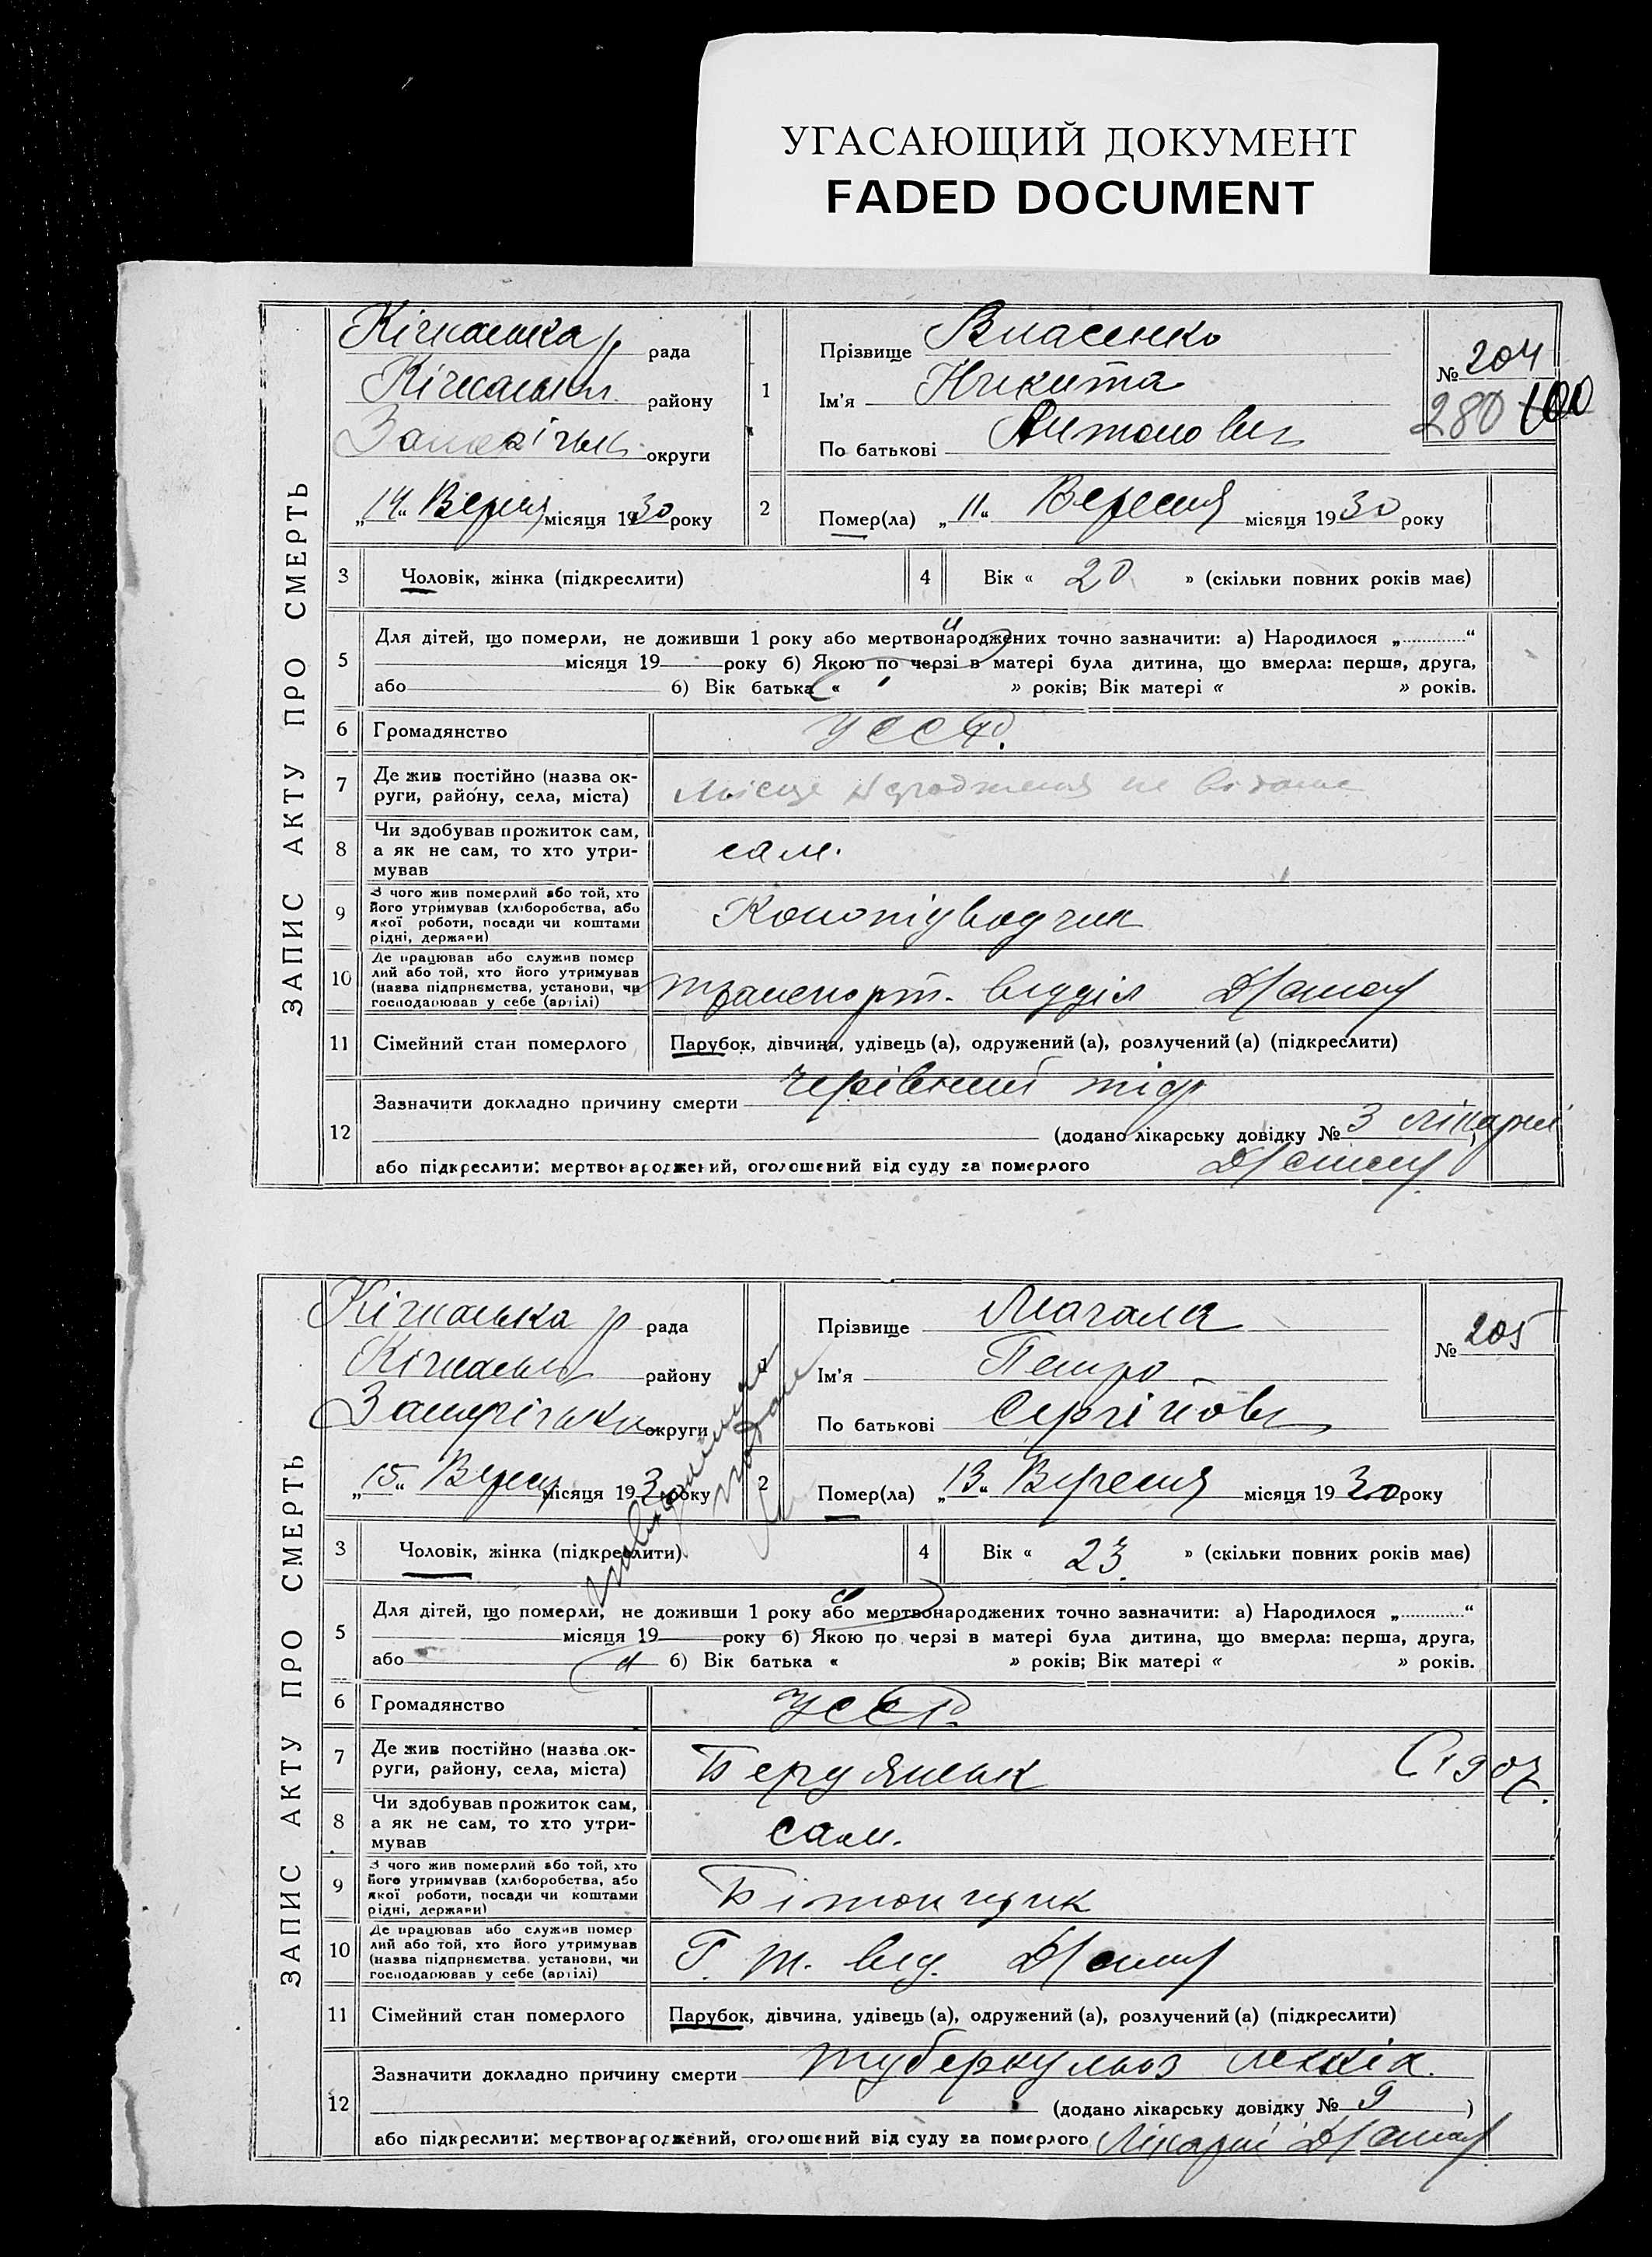 УГАСАЮЩИЙ ДОКУМЕНТ
FADED DOCUMENT
ЗАПИС АКТУ ПРО СМЕРТЬ
Кічкаська р рада
району
округи
„14“ місяця 1930 року
1
Прізвище Власенко
Ім'я Никита
По батькові Антонович
№ 204
280 100
2
Помер(ла) „11“ Вересня місяця 1930 року
3 Чоловік, жінка (підкреслити)
4 Вік « 20 » (скільки повних років має)
5 Для дітей, що померли, не доживши 1 року або мертвонароджених точно зазначити: а) Народилося „ “
місяця 19 року б) Якою по черзі в матері була дитина, що вмерла: перша, друга,
або б) Вік батька « » років; Вік матері « » років.
6 Громадянство УССР.
7 Де жив постійно (назва ок-
руги, району, села, міста) Місце народження не відоме
8 Чи здобував прожиток сам,
а як не сам, то хто утри-
мував сам.
9 З чого жив померлий або той, хто
його утримував (хліборобства, або
якої роботи, посади чи коштами
рідні, держави) Конопідводчик
10 Де працював або служив помер
лий або той, хто його утримував
(назва підприємства, установи, чи
господарював у себе (артілі) транспорт. відділ
11 Сімейний стан померлого Парубок, дівчина, удівець (а), одружений (а), розлучений (а) (підкреслити)
12 Зазначити докладно причину смерти черівний тіф
(додано лікарську довідку № З лікарні )
або підкреслити: мертвонароджений, оголошений від суду за померлого
ЗАПИС АКТУ ПРО СМЕРТЬ
Кічкаська р рада
району
округи
„15“ місяця 193 року
Прізвище
Ім'я Петро
По батькові Сергійович
№ 205
2
Помер(ла) „13“ Вересня місяця 1930 року
3 Чоловік, жінка (підкреслити)
4 Вік « 23. » (скільки повних років має)
5 Для дітей, що померли, не доживши 1 року або мертвонароджених точно зазначити: а) Народилося „ “
місяця 19 року б) Якою по черзі в матері була дитина, що вмерла: перша, друга,
або б) Вік батька « » років; Вік матері « » років.
6 Громадянство УССР.
7 Де жив постійно (назва ок-
руги, району, села, міста) Бердянськ 1907.
8 Чи здобував прожиток сам,
а як не сам, то хто утри-
мував сам.
9 З чого жив померлий або той, хто
його утримував (хліборобства, або
якої роботи, посади чи коштами
рідні, держави) Бітонщик
10 Де працював або служив помер
лий або той, хто його утримував
(назва підприємства, установи, чи
господарював у себе (артілі) Г. т. від.
11 Сімейний стан померлого Парубок, дівчина, удівець (а), одружений (а), розлучений (а) (підкреслити)
12 Зазначити докладно причину смерти туберкульоз легкіх.
(додано лікарську довідку № 9 )
або підкреслити: мертвонароджений, оголошений від суду за померлого Лікарні